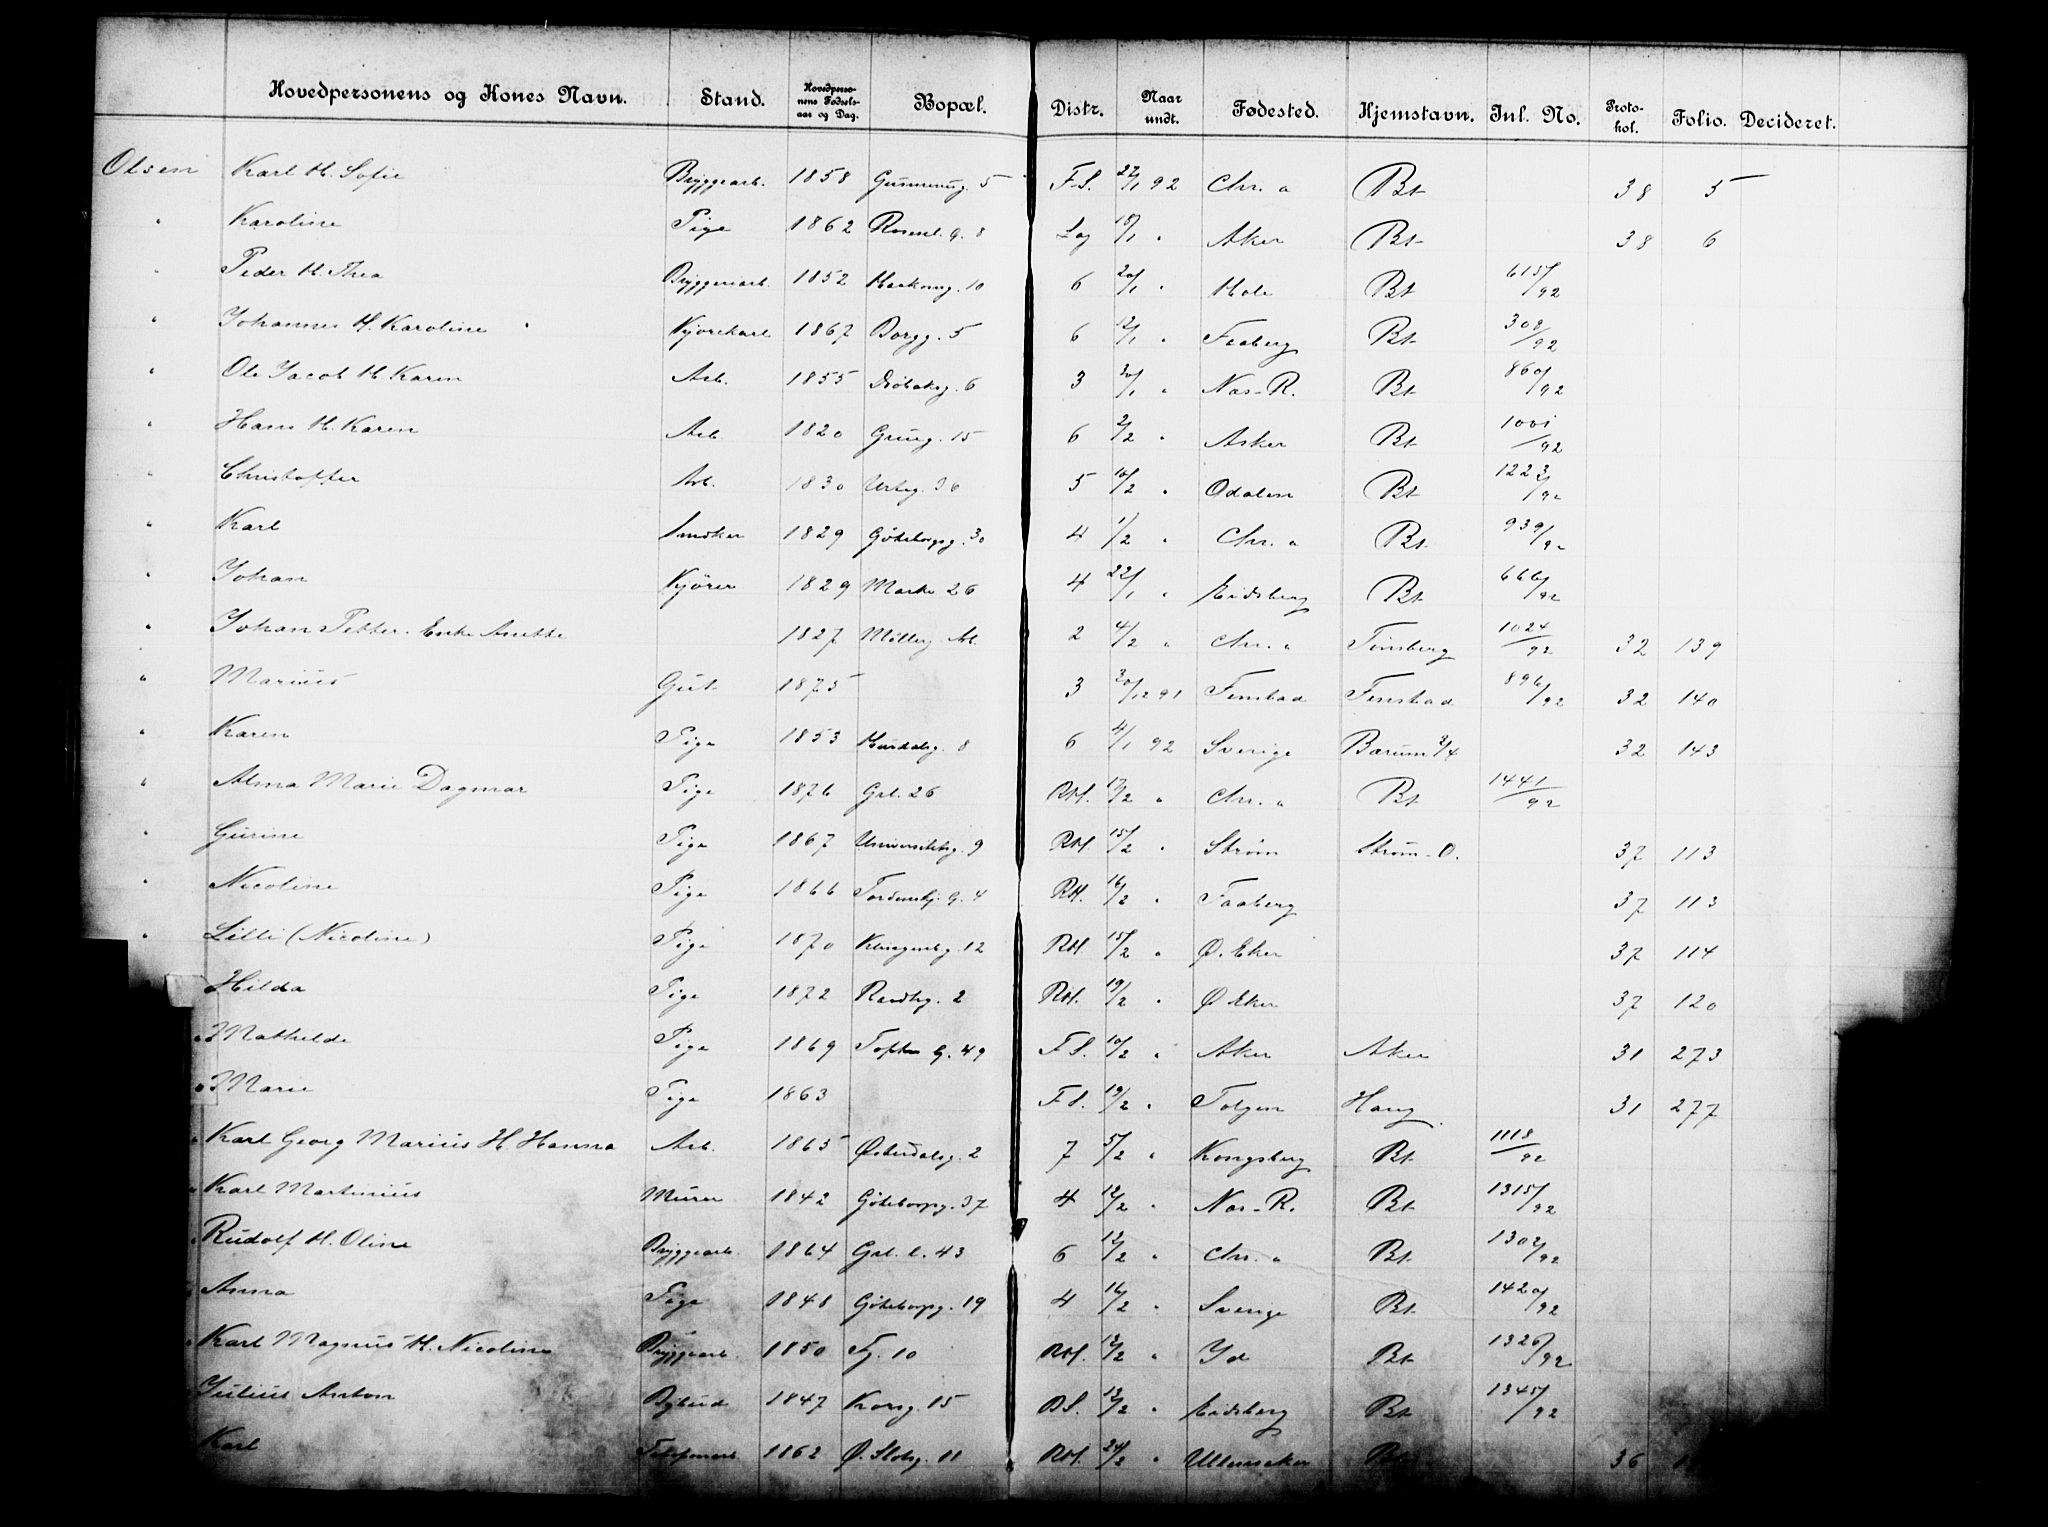 Hovedpersonens og Kones Navn. Stand. Hovedpersonens Fødselsaar og Dag. Bopæl. Distr. Naar undt. Fødested. Hjemstavn. Inl. No. Protokol. Folio. Decideret.
Olsen Karl H. Sofie Bryggearb. 1858 5 F.S. 92 Chr. a Bt 38 5
" Karoline Pige 1862 Rosenl. g. 8 Lag 18/1 " Aker Bt 38 6
" Peder H. Thea Bryggeriarb. 1852 10 6 20/1 " Hole Bt 615/92
" Johannes H. Karoline Kjørekarl 1867 Borgg. 5 6 12/1 " Faaberg Bt 308/92
" Ole Jacob H. Karen Arb. 1855 Drøbaksg. 6 3 " Nas-R. Bt 860/92
" Hans H. Karen Arb 1820 Grueg. 15 6 2/2 " Asker Bt 1001/92
" Christoffer Arb. 1830 Urteg. 36 5 10/2 " Odalen Bt 1223/92
" Karl Snedker 1829 Göteborgg. 30 4 1/2 " Chr. a Bt 939/92
" Johan Kjører 1829 Markv 26 4 22/1 " Eidsberg Bt 666/92
" Johan Petter. Enke Anette 1827 Møllerg 2 4/2 " Chr. a Tønsberg 1024/92 32 139
" Marius Gut 1875 3 30/12 91 Fenstad Fenstad 896/92 32 140
" Karen Pige 1853 Hurdalsg. 8 6 4/1 92 Sverige Bærum 3/4 32 143
" Alma Marie Dagmar Pige 1876 Grl. 26 RH. 17/2 " Chr. a Bt 1441/92
" Gurine Pige 1867 Universitetsg. 9 RH. 15/2 " Strøm Strøm-O. 37 113
" Nicoline Pige 1866 Tordenskj. G. 4 RH. 16/2 " Faaberg 37 113
" Lilli (Nicoline) Pige 1870 Klingenbg. 12 RH 15/2 " Ø. Eker 37 114
Hilda Pige 1872 2 RH. 19/2 " Ø Eker 37 120
" Mathilde Pige 1869 Tofte G. 49 F.S. 10/2 " Aker Aker 31 273
" Marie Pige 1863 F.S. 19/2 " Tolgen Haug 31 277
" Karl Georg Marius H. Hanna Arb. 1865 Østerdalsg. 2 7 5/2 " Kongsberg Bt 1118/92
" Karl Martinius Murer 1842 Göteborgg. 37 4 12/2 " Nas-R. Bt 1315/92
" Rudolf H. Oline Bryggearb. 1864 Grl. l. 43 6 12/2 " Chr. a Bt 1302/92
" Anna Pige 1848 Göteborgg. 19 4 16/2 " Sverige Bt 1420/92
" Karl Magnus H. Nicoline Bryggearb. 1850 10 RH. 12/2 " Id Bt 1326/92
Julius Anton Bybud 1847 Korsg. 15 BS. 12/2 " Eidsberg Bt 1345/92
Karl Telefonarb. 1862 Ø. Slotsg. 11 RH. 24/2 " Ullensaker Bt 36